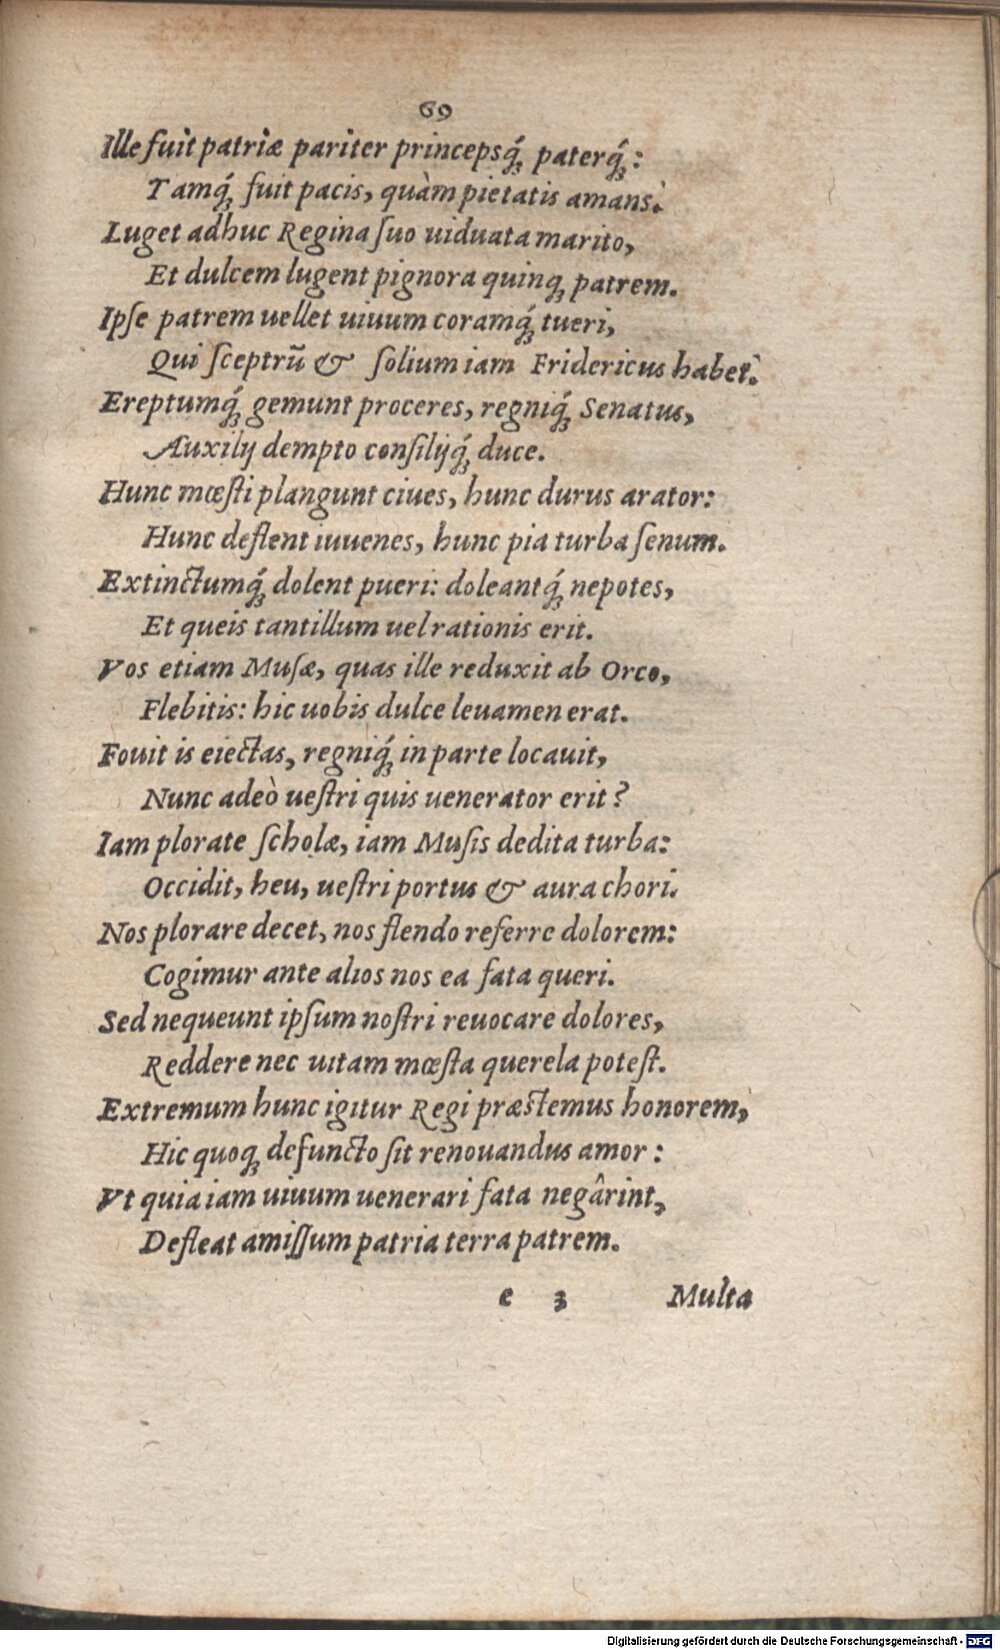 69
Ille fuit patriæ pariter princepsq́; paterq́;:
Tamq́; fuit pacis, quàm pietatis amans.
Luget adhuc Regina ſuo uiduata marito,
Et dulcem lugent pignora quinq; patrem.
Ipſe patrem uellet uiuum coramq́; tueri,
Qui ſceptrū & ſolium iam Fridericus habet.
Ereptumq́; gemunt proceres, regniq́; Senatus,
Auxilij dempto conſilijq́; duce.
Hunc mœſti plangunt ciues, hunc durus arator:
Hunc deflent iuuenes, hunc pia turba ſenum.
Extinctumq́; dolent pueri: doleantq́; nepotes,
Et queis tantillum uel rationis erit.
Vos etiam Muſæ, quas ille reduxit ab Orco,
Flebitis: hic uobis dulce leuamen erat.
Fouit is eiectas, regniq́; in parte locauit,
Nunc adeò ueſtri quis uenerator erit?
Iam plorate ſcholæ, iam Muſis dedita turba:
Occidit, heu, ueſtri portus & aura chori.
Nos plorare decet, nos flendo referre dolorem:
Cogimur ante alios nos ea fata queri.
Sed nequeunt ipſum noſtri reuocare dolores,
Reddere nec uitam mœſta querela poteſt.
Extremum hunc igitur Regi præſtemus honorem,
Hic quoq; defuncto ſit renouandus amor:
Vt quia iam uiuum uenerari fata negârint,
Defleat amiſſum patria terra patrem.
e 3 Multa
Digitalisierung gefördert durch die Deutsche Forschungsgemeinschaft - DFG